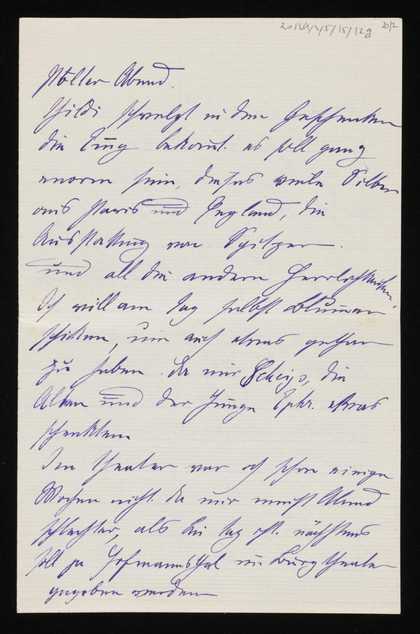 Polter Abend.
Hilde schwelgt in den Geschenken
die Emmy bekomt. es soll ganz
enorm sein, dieses viele Silber
aus Paris und England, die
Ausstattung von Spitzer.
und all die andern Herrlichkeiten.
Ich will am Tag selbst Blumen
schicken, um auch etwas gethan
zu haben. da mir die
Alten und der Junge etwas
schenkten
Im Theater war ich schon einige
Wochen nicht da mir meist Abend
schlechter, als bei Tag ist. nächstens
soll ja Hofmannsthal im Burgtheater
gegeben werden